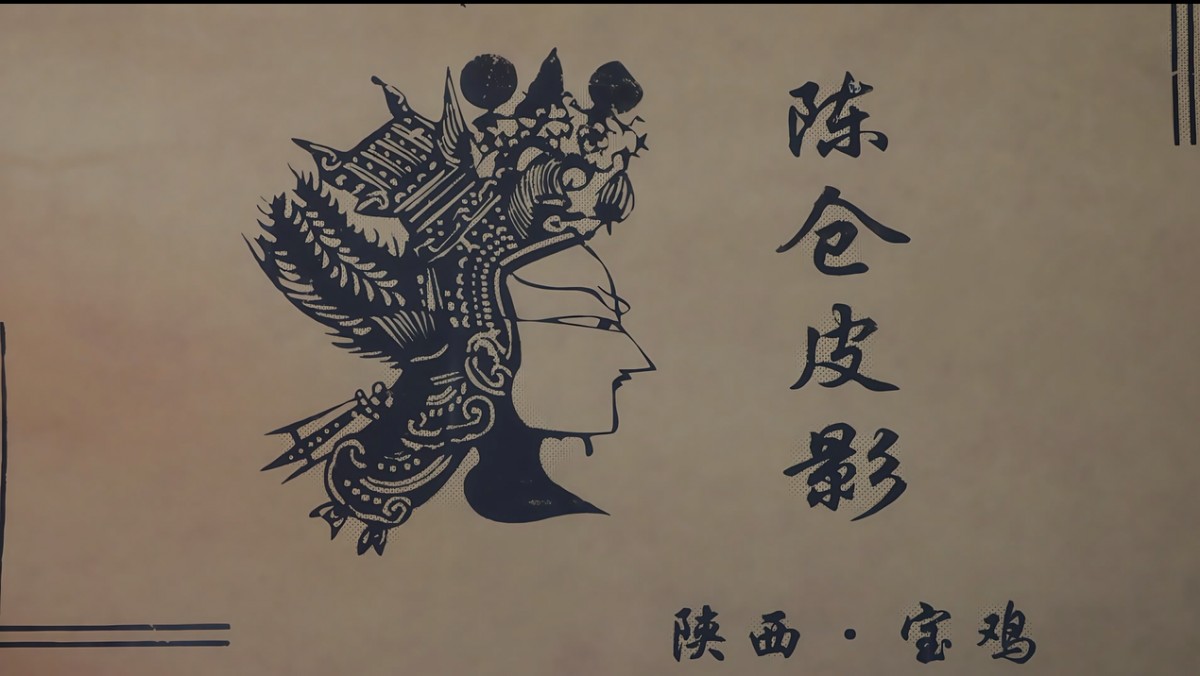 陈仓皮影
陕西·宝鸡